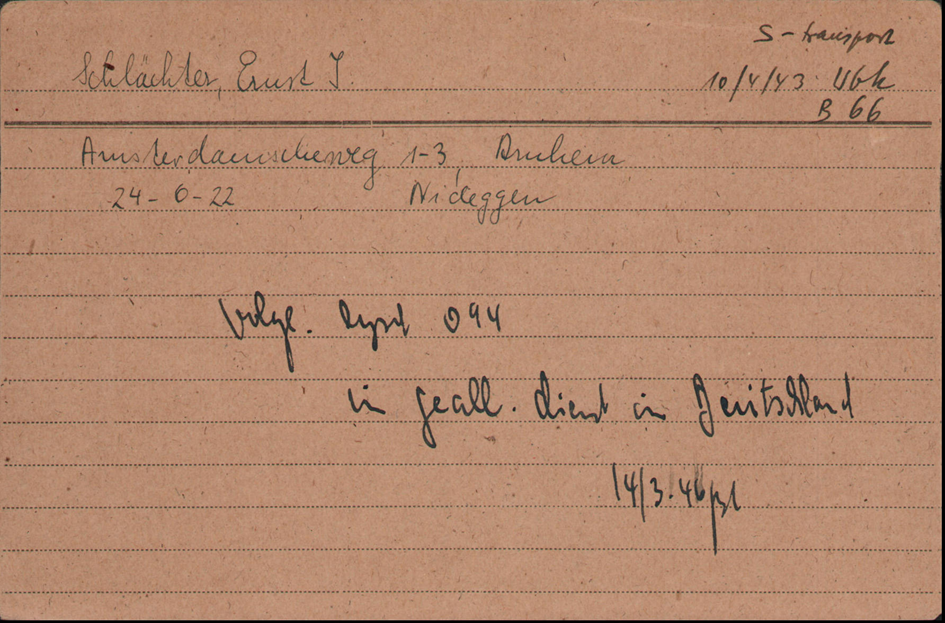 S-transport
Schlächter, Ernst I.
10/4/43 Vbk
B 66
Amsterdamscheweg 1-3, Arnhem
24-6-22 Nideggen
Volgl. 094
in geall. dienst in Deutschland
14/3.46